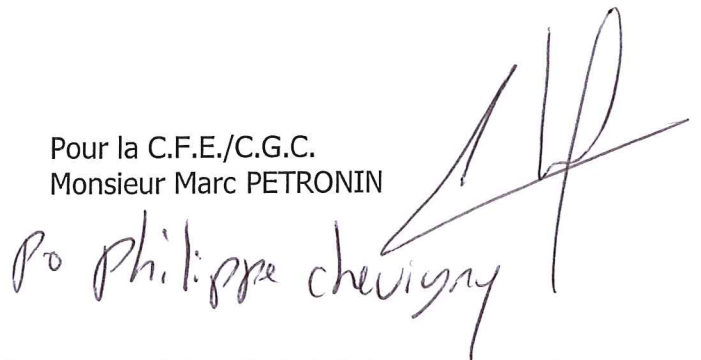 Pour la C.F.E./C.G.C.
Monsieur Marc PETRONIN
Po Philippe chevigny